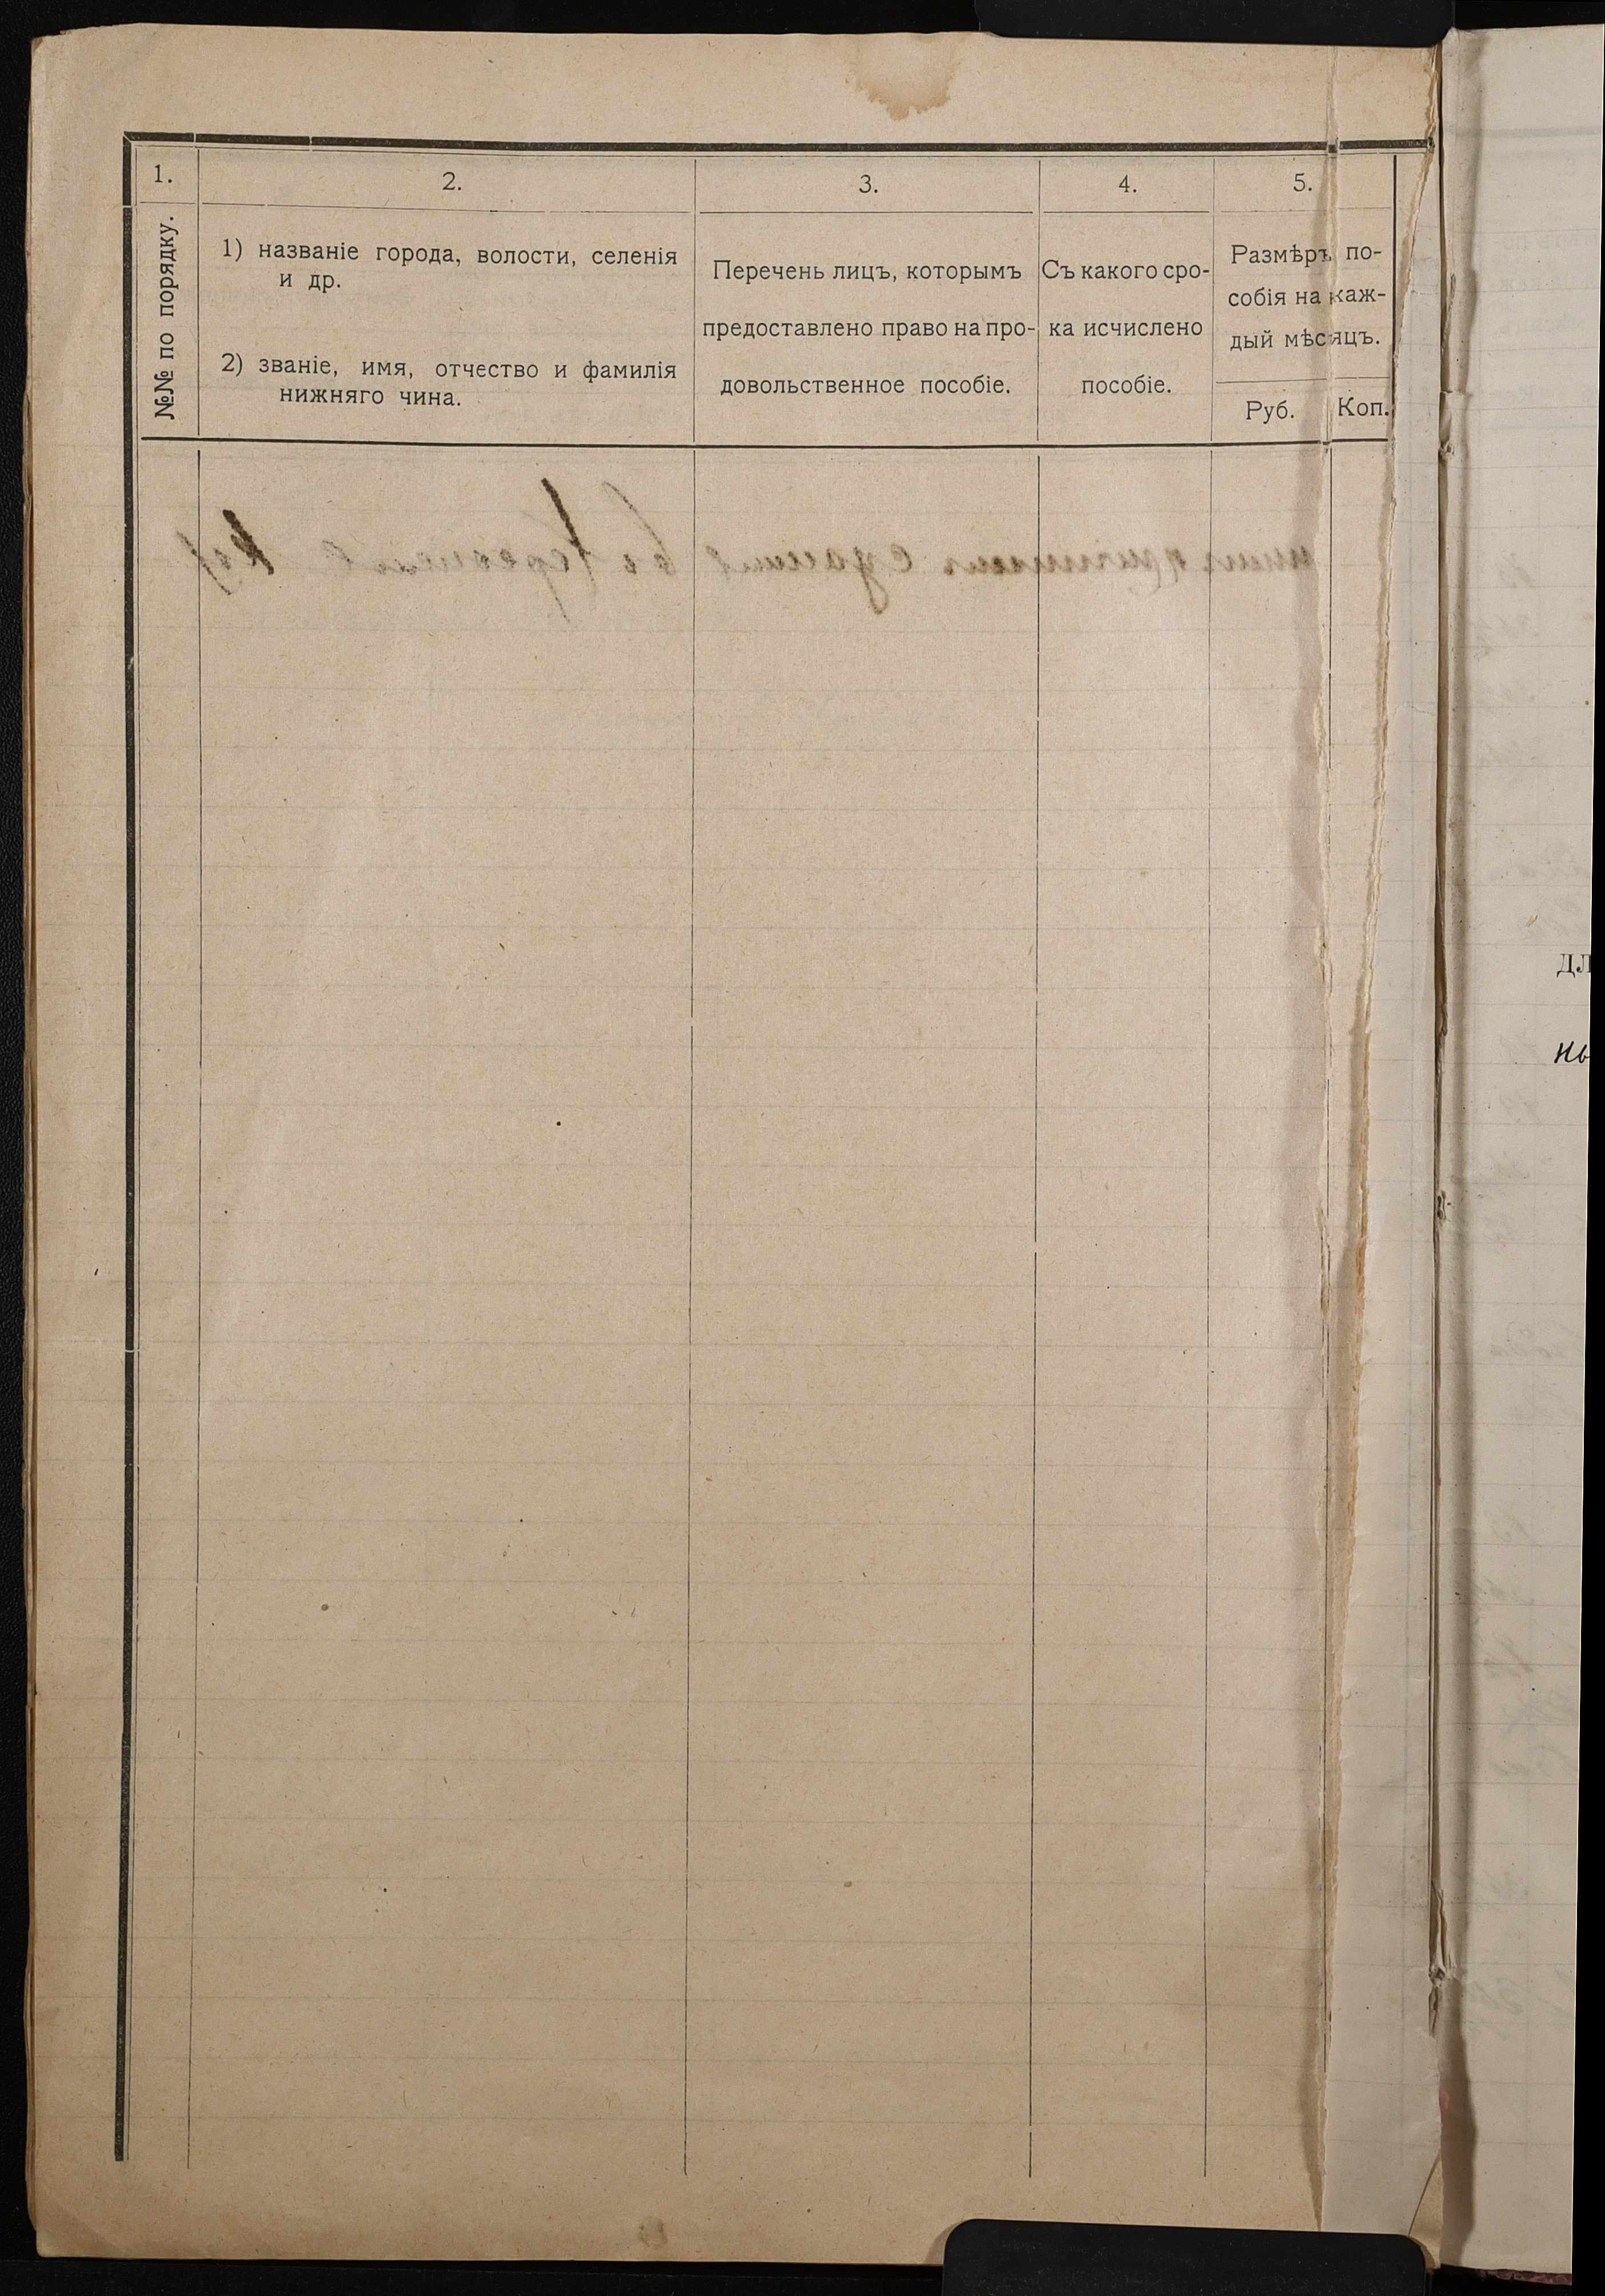 1.
2.
3.
4.
5.
№№ по порядку.
1) названіе города, волости, селенія
и др.
2) званіе, имя, отчество и фамилія
нижняго чина.
Перечень лицъ, которымъ
предоставлено право на про-
довольственное пособіе.
Съ какого сро-
ка исчислено
пособіе.
Размѣръ по-
собія на каж-
дый мѣсяцъ.
Руб.
Коп.
дл
нь